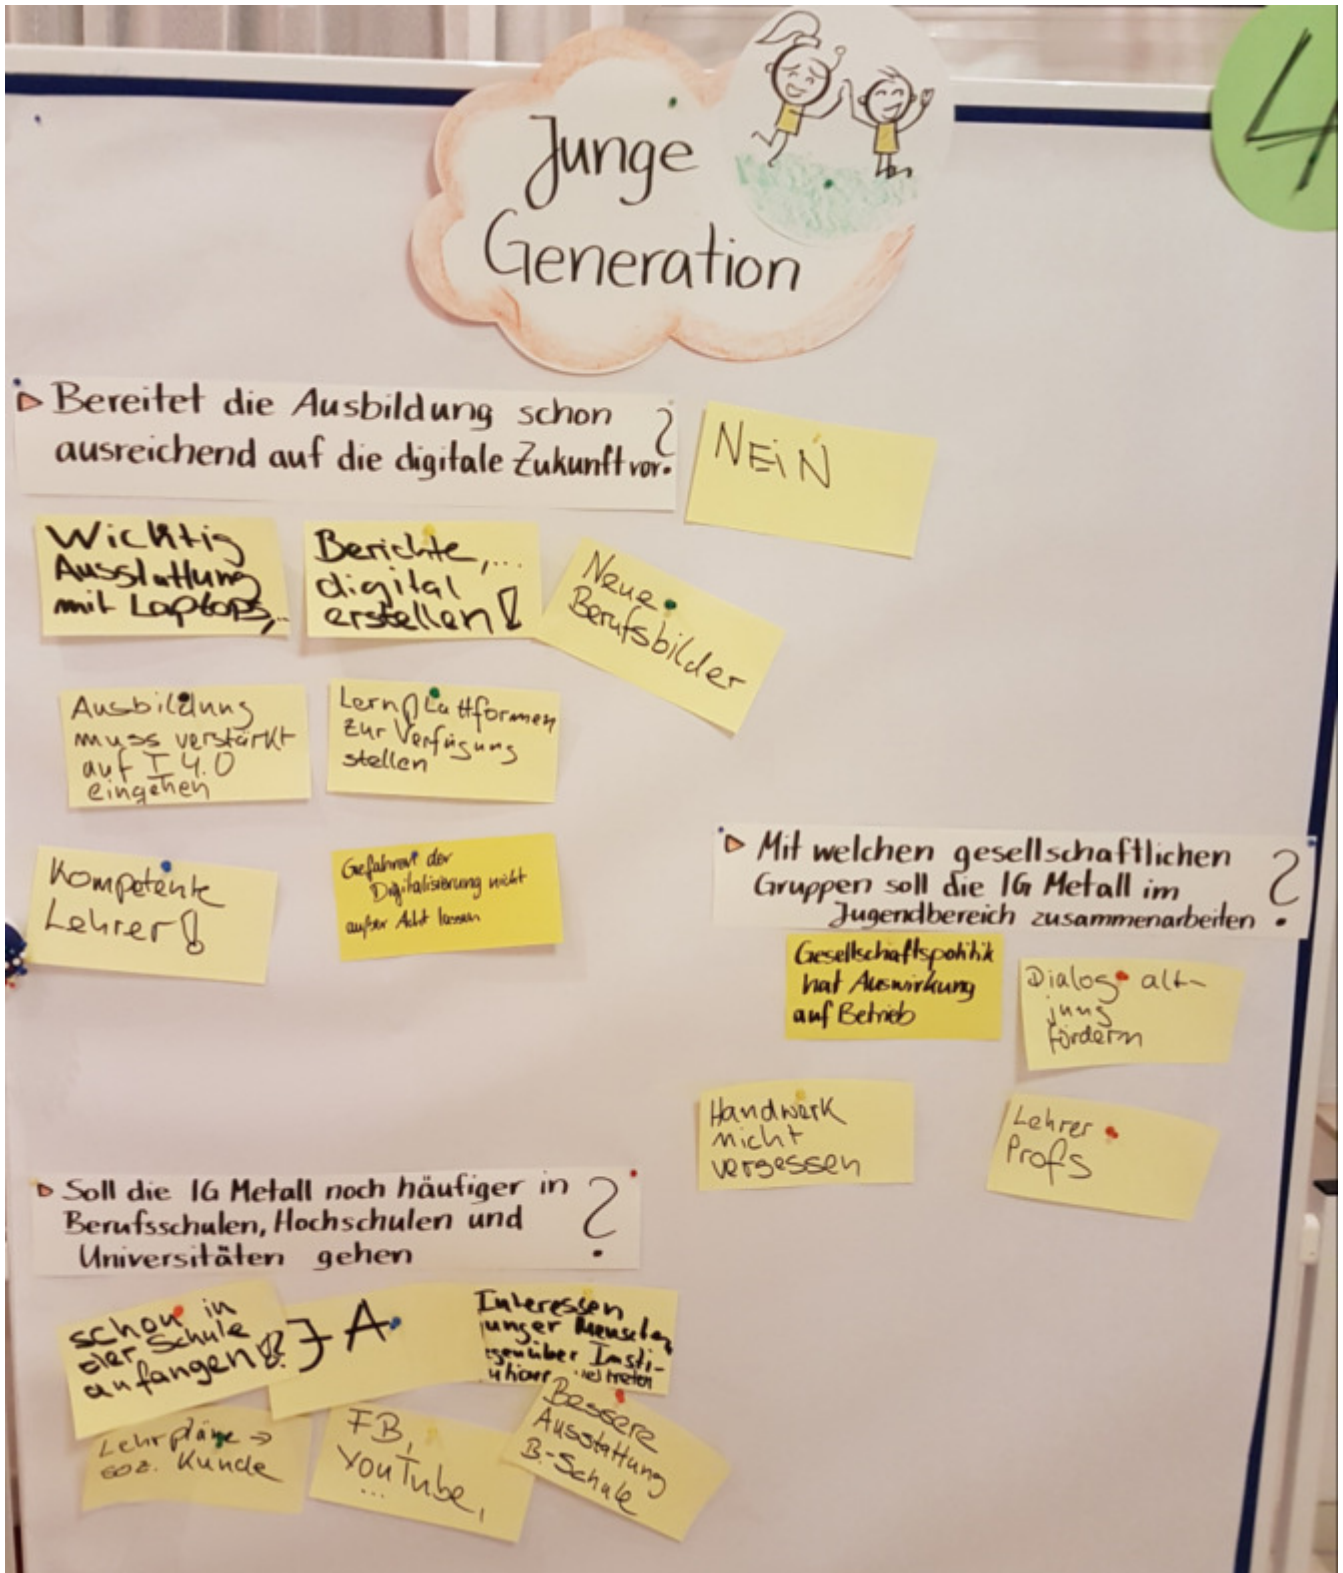 4
Junge
Generation
Bereitet die Ausbildung schon
ausreichend auf die digitale Zukunft vor?
NEiN
Wichtig
Ausstattung
mit Laptops,..
Berichte,...
digital
erstellen!
Neue
Berufsbilder
Ausbildung
muss verstärkt
auf I 4.0
eingehen
Lernplattformen
zur Verfügung
stellen
Kompetente
Lehrer!
Gefahren der
Digitalisierung nicht
außer Acht lassen
Mit welchen gesellschaftlichen
Gruppen soll die IG Metall im
Jugendbereich zusammenarbeiten?
Gesellschaftspolitik
hat Auswirkung
auf Betrieb
Dialog alt-
jung
fördern
Handwerk
nicht
vergessen
Lehrer
Profs
Soll die IG Metall noch häufiger in
Berufsschulen, Hochschulen und
Universitäten gehen?
schon in
der Schule
anfangen!?
JA
Interessen
junger Menschen
gegenüber Insti-
vertreten
Lehrpläne →
soz. Kunde
FB,
YouTube,
...
Bessere
Ausstattung
B.-Schule